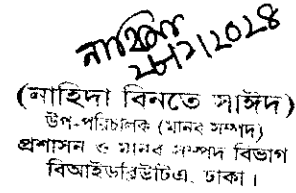 নাহিদা
২৮/১/২০২৪
(নাহিদা বিনতে সাঈদ)
উপ-পরিচালক (মানব সম্পদ)
প্রশাসন ও মানব সম্পদ বিভাগ
বিআইডব্লিউটিএ, ঢাকা।